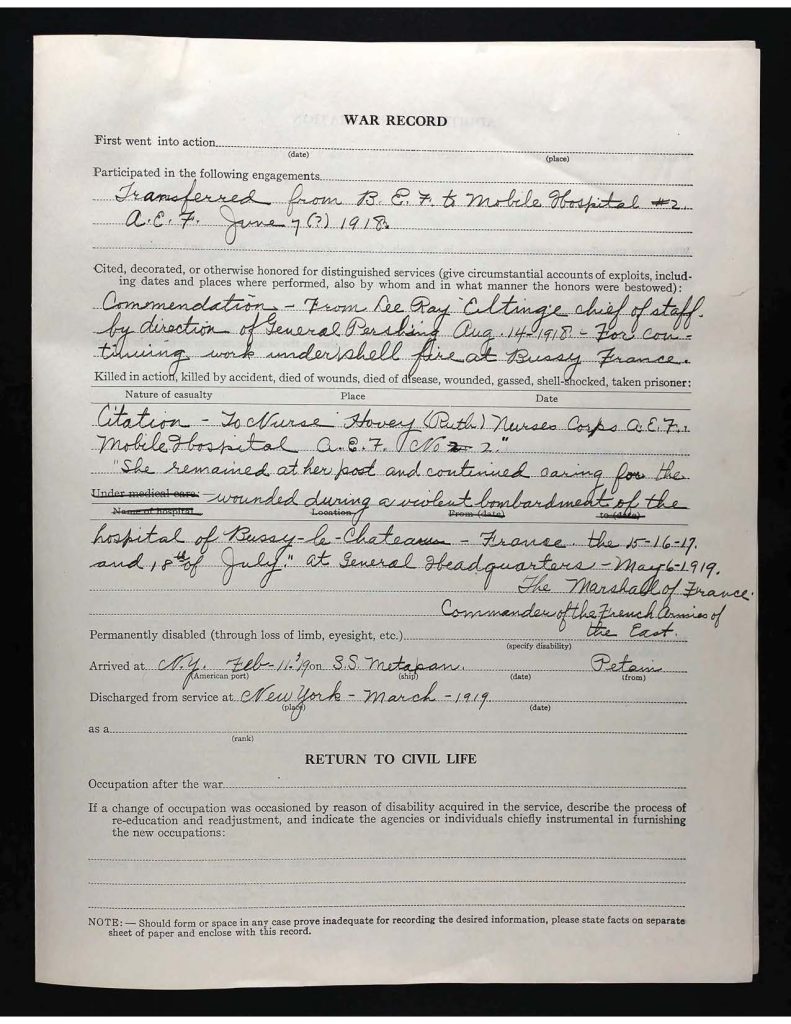 WAR RECORD
First went into action
(date) (place)
Participated in the following engagements
Transferred from B. E. F. to Mobile Hospital #2.
A. E. F. June 7 (?) 1918.
Cited, decorated, or otherwise honored for distinguished services (give circumstantial accounts of exploits, includ-
ing dates and places where performed, also by whom and in what manner the honors were bestowed):
Commendation - From Lee Roy Eltinge chief of staff.
by direction of General Pershing Aug. 14-1918 - For con-
tinuing work under shell fire at Bussy France.
Killed in action, killed by accident, died of wounds, died of disease, wounded, gassed, shell-shocked, taken prisoner:
Nature of casualty Place Date
Citation - To Nurse Hovey (Ruth) Nurses Corps A.E.F.
Mobile Hospital A.E.F. No 2."
"She remained at her post and continued caring for the
Under medical care: wounded during a violent bombardment of the
Name of hospital Location From (date) to (date)
hospital of Bussy-le-Chateau - France. the 15-16-17.
and 18th of July." at General Headquarters - May-6-1919.
The Marshall of France.
Commander of the French Armies of
Permanently disabled (through loss of limb, eyesight, etc.) the East.
(specify disability)
Arrived at N.Y. Feb-11-'19 on S.S. Metapan. Petain
(American port) (ship) (date) (from)
Discharged from service at New York - March - 1919
(place) (date)
as a
(rank)
RETURN TO CIVIL LIFE
Occupation after the war
If a change of occupation was occasioned by reason of disability acquired in the service, describe the process of
re-education and readjustment, and indicate the agencies or individuals chiefly instrumental in furnishing
the new occupations:
NOTE: — Should form or space in any case prove inadequate for recording the desired information, please state facts on separate
sheet of paper and enclose with this record.